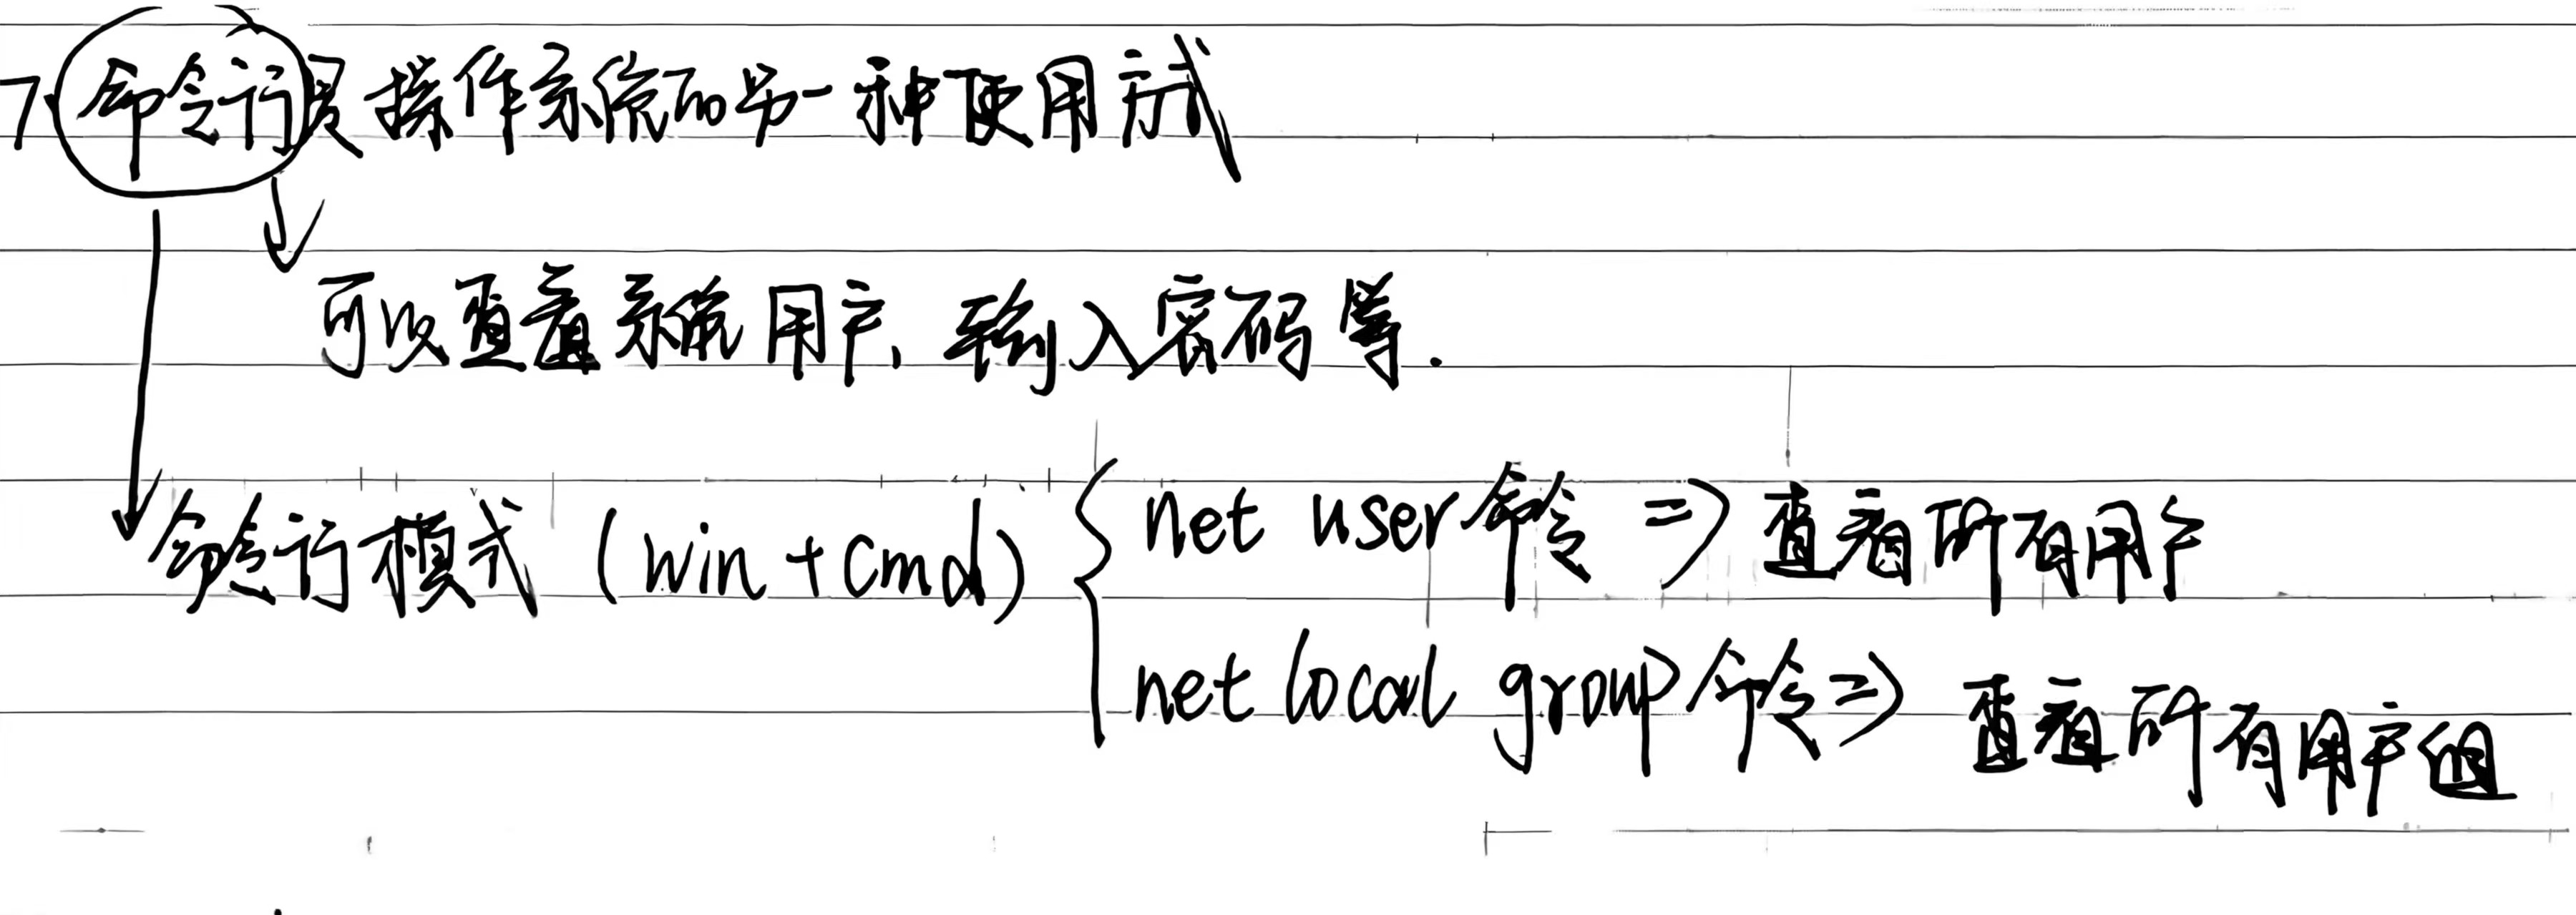 7、命令行是操作系统的另一种使用方式
可以查看系统用户，输入密码等.
命令行模式 (win + cmd) { net user命令 => 查看所有用户
net local group命令 => 查看所有用户组